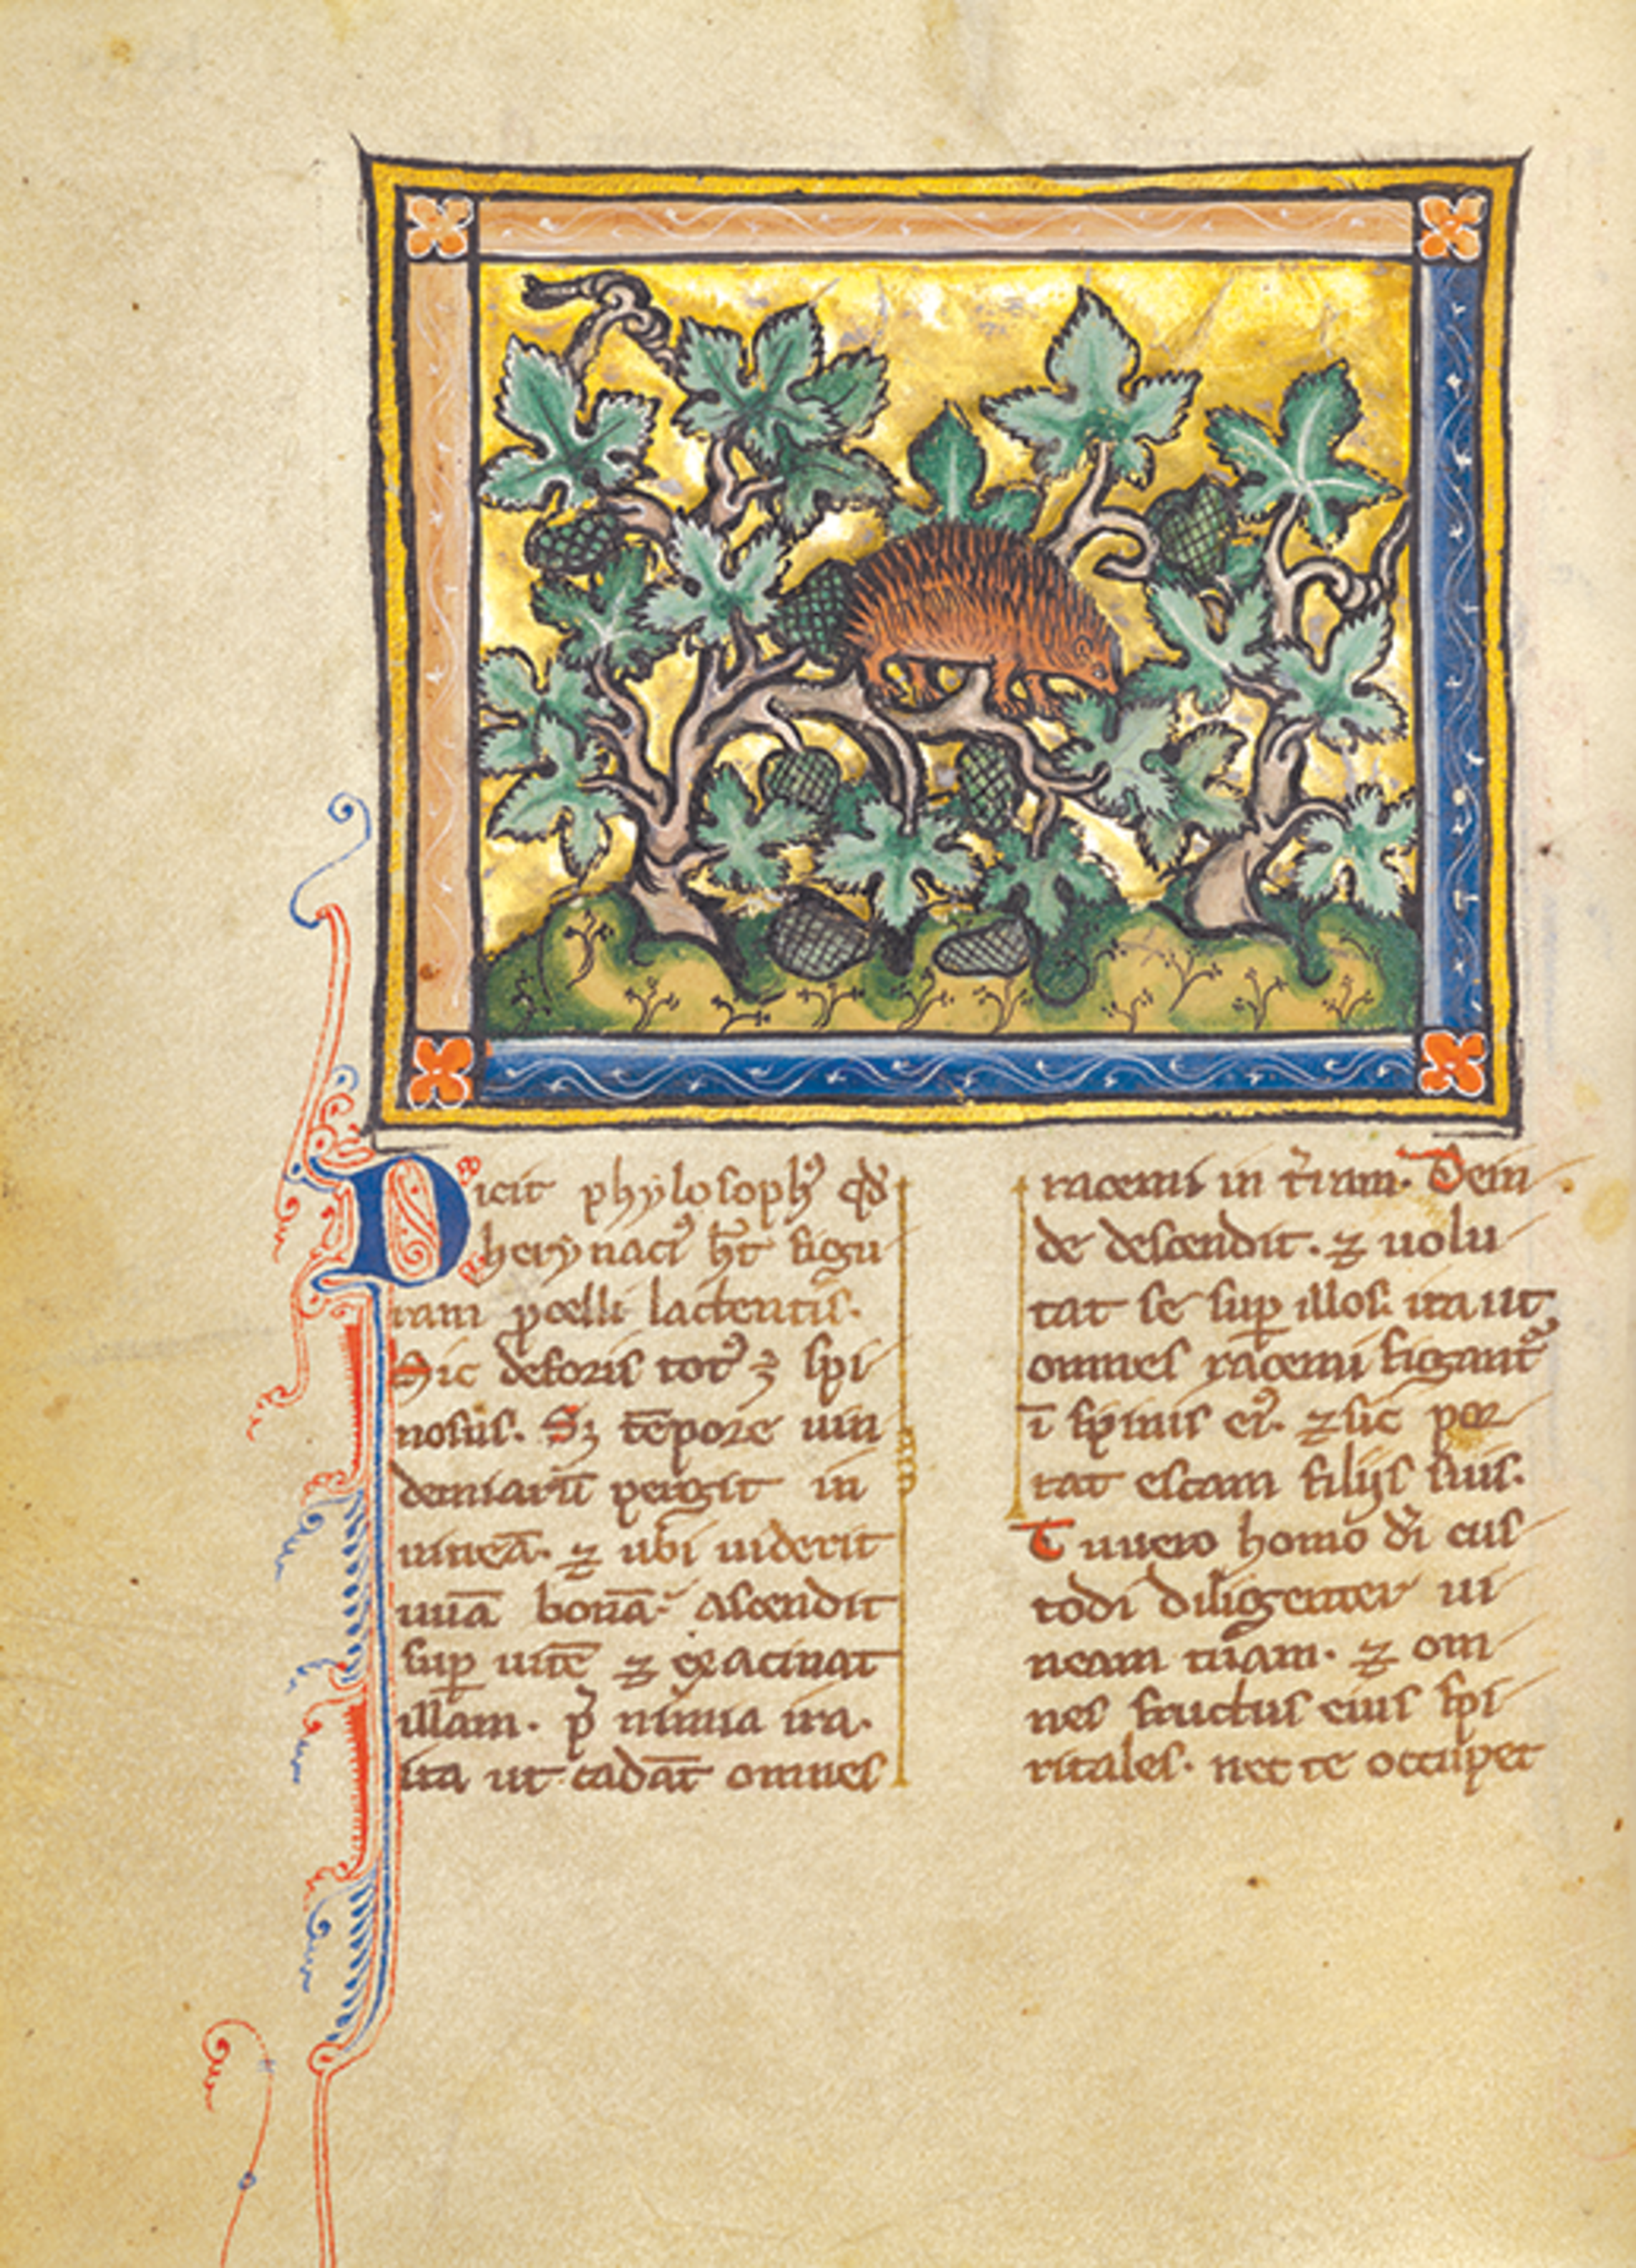 Dicit phylosophꝰ qđ
herynaciꝰ h̅t figu
ram ꝓcelli lactentis.
Sic deforis totꝰ ÷ spi
nosus. Sꝫ te̅pore uin
demiaru̅ pergit in
uinea̅. ⁊ ubi uiderit
uua̅ bona̅. ascendit
suꝑ uite̅ ⁊ exacinat
illam. p̱ nimia ira.
ita ut cada̅t omnes
racemi in t̅ram. Dein
de descendit. ⁊ uolu
tat se suꝑ illos. ita ut
omnes racemi figant᷑
i̅ spinis eiꝰ. ⁊ sic por
tat escam filijs suis.
Tu uero homo di̅ cus
todi diligenter ui
neam tuam. ⁊ om
nes fructus eius spi
ritales. nec te occupet